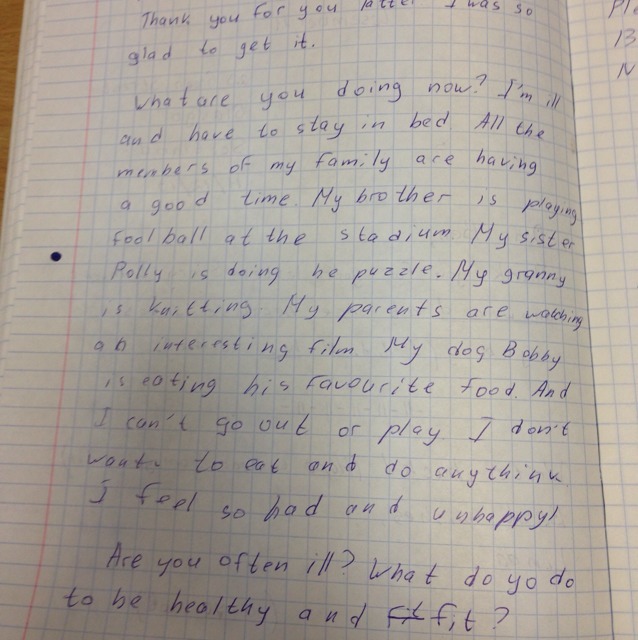 Thank you for you latter I was so
glad to get it.
What are you doing now? I'm ill
and have to stay in bed. All the
members of my family are having
a good time. My brother is playing
foolball at the stadium. My sister
Polly is doing he puzzle. My granny
is knitting. My parents are watching
an interesting film. My dog Bobby
is eating his favourite food. And
I can't go out or play. I don't
want to eat and do anythink.
I feel so bad and unhappy!
Are you often ill? What do yo do
to be healthy and fit?
13
N